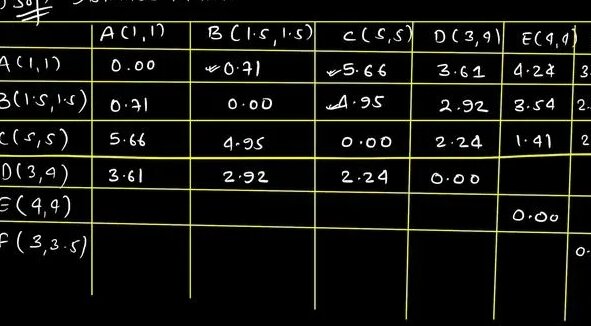 A(1,1) B(1.5,1.5) C(5,5) D(3,4) E(4,4)
A(1,1) 0.00 0.71 5.66 3.61 4.24 3.
B(1.5,1.5) 0.71 0.00 4.95 2.92 3.54 2.
C(5,5) 5.66 4.95 0.00 2.24 1.41 2
D(3,4) 3.61 2.92 2.24 0.00
E(4,4) 0.00
F(3,3.5) 0.